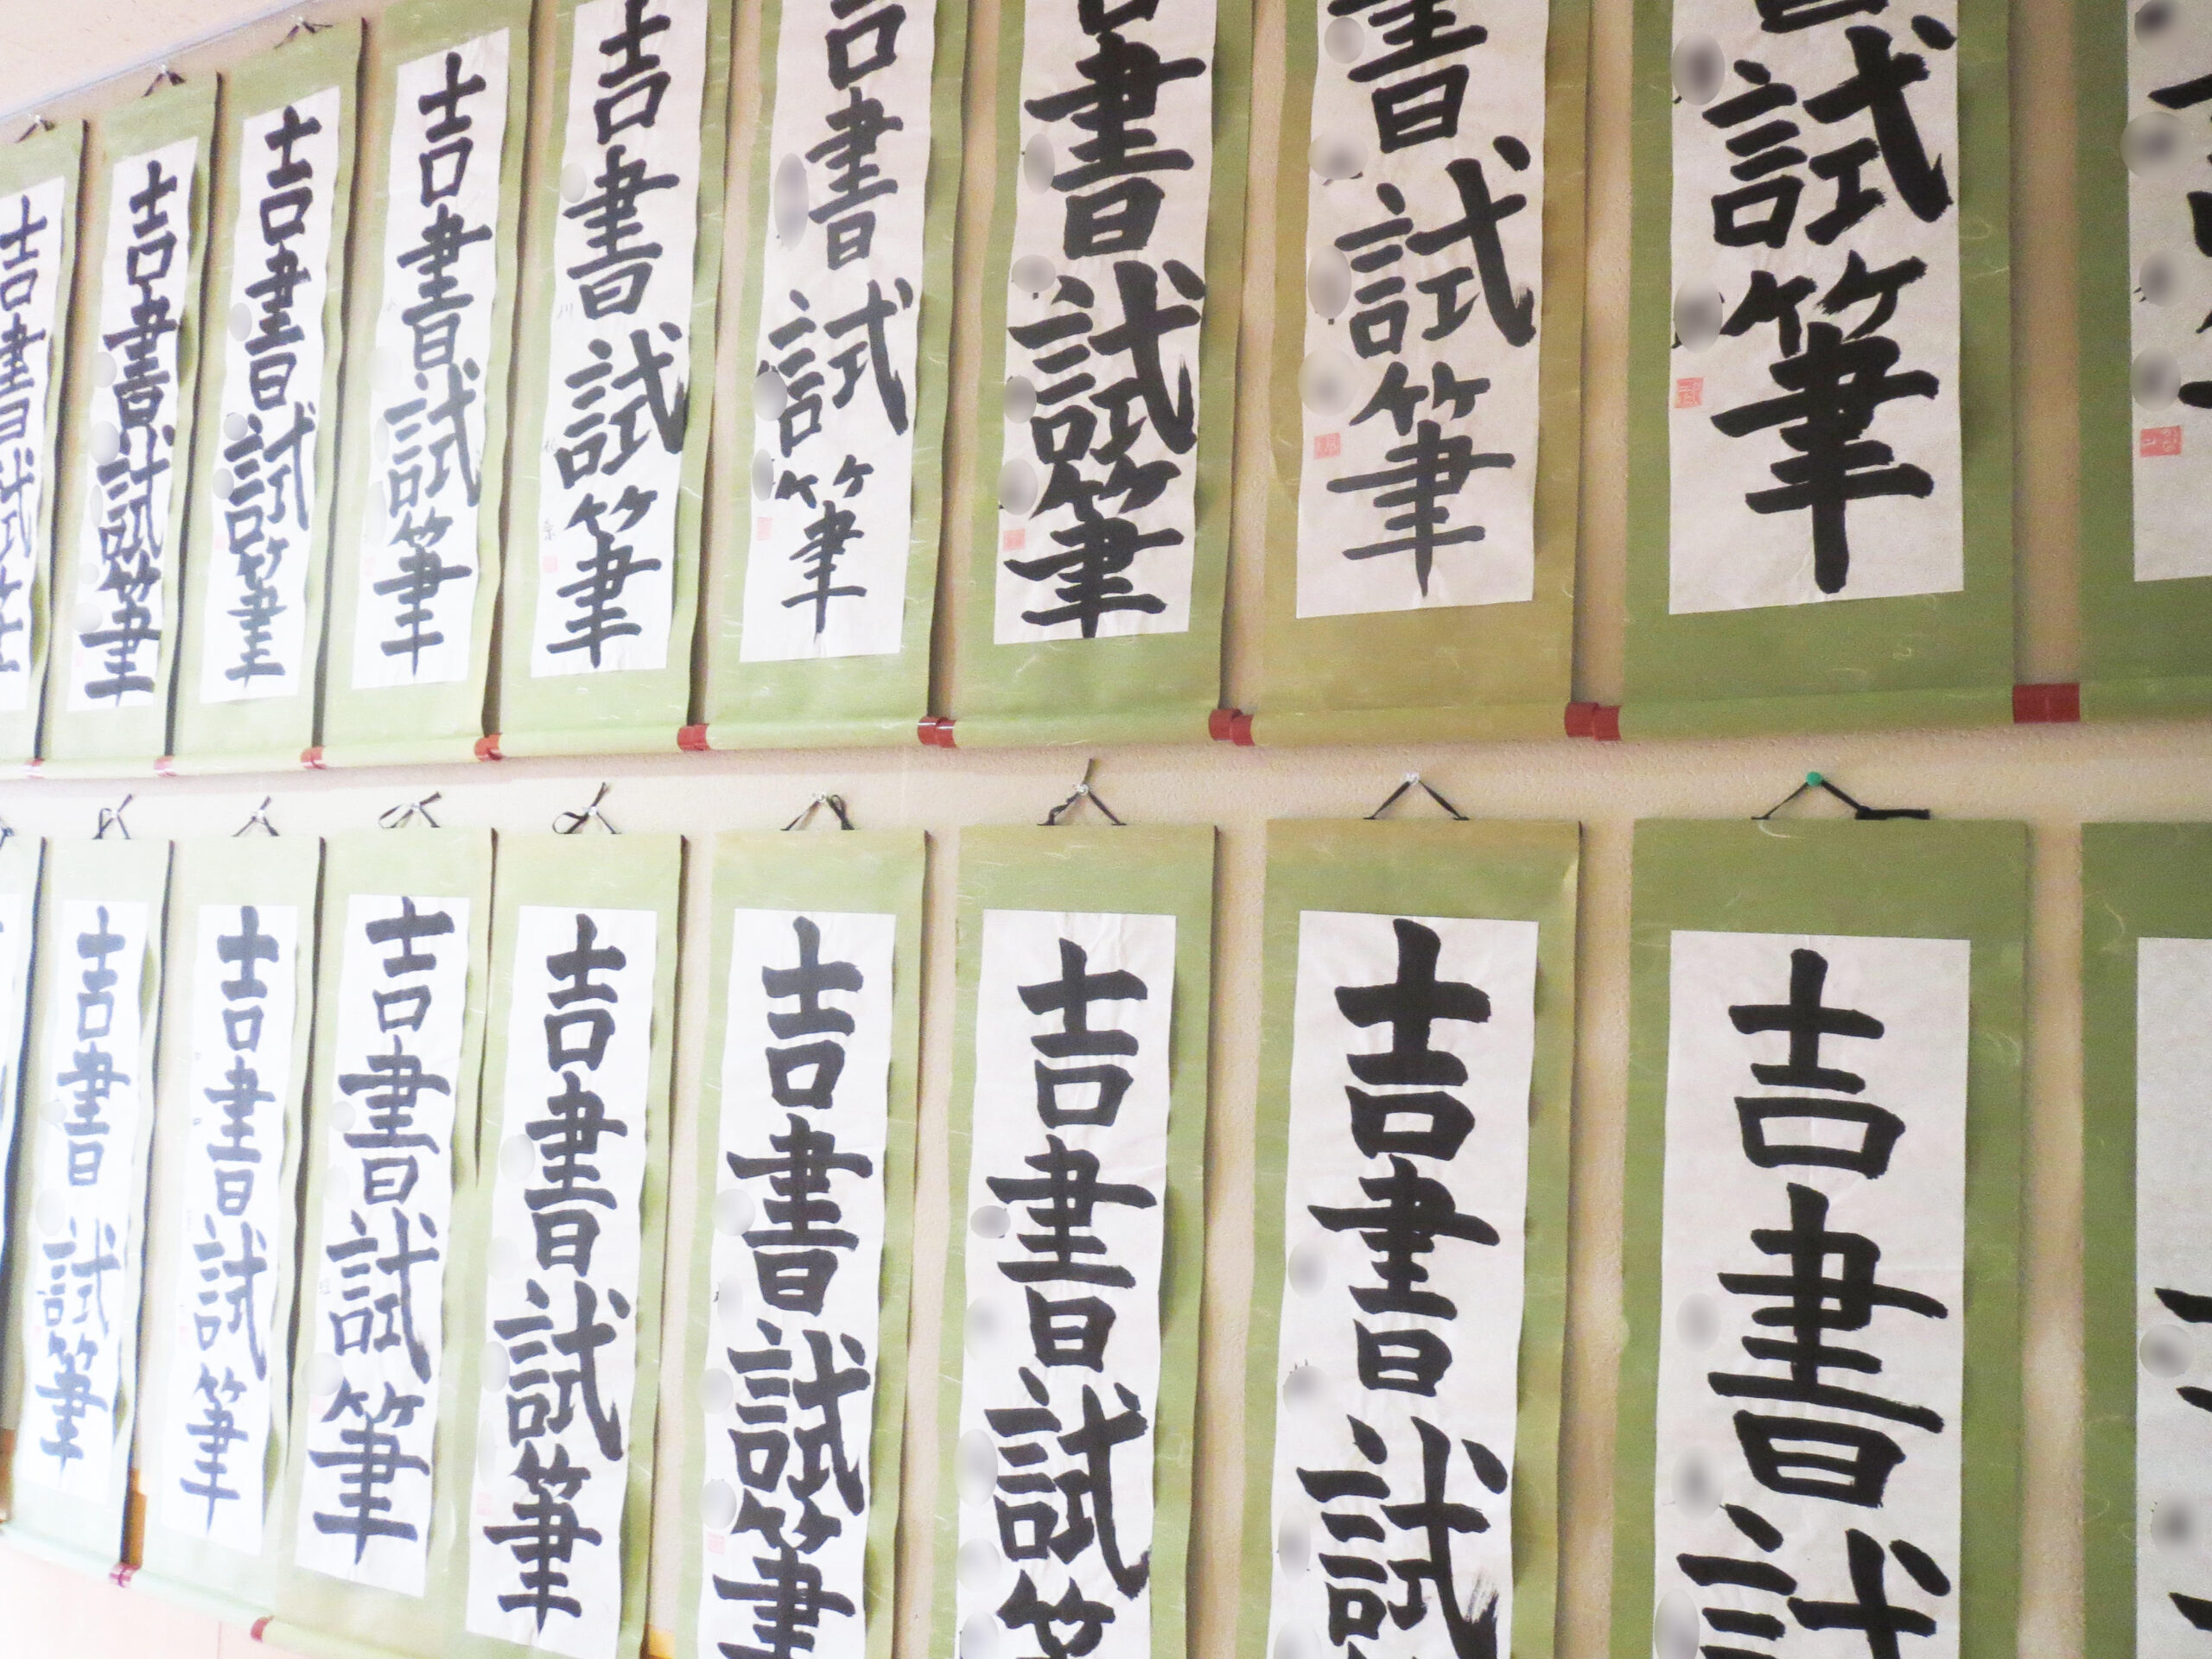 試筆
書試筆
書試筆
吉書試筆
吉書試筆
吉書試筆
吉書試筆
吉書試筆
吉書試筆
吉書試
吉書試
吉書試筆
吉書試筆
吉書試筆
吉書試筆
吉書試筆
吉書試筆